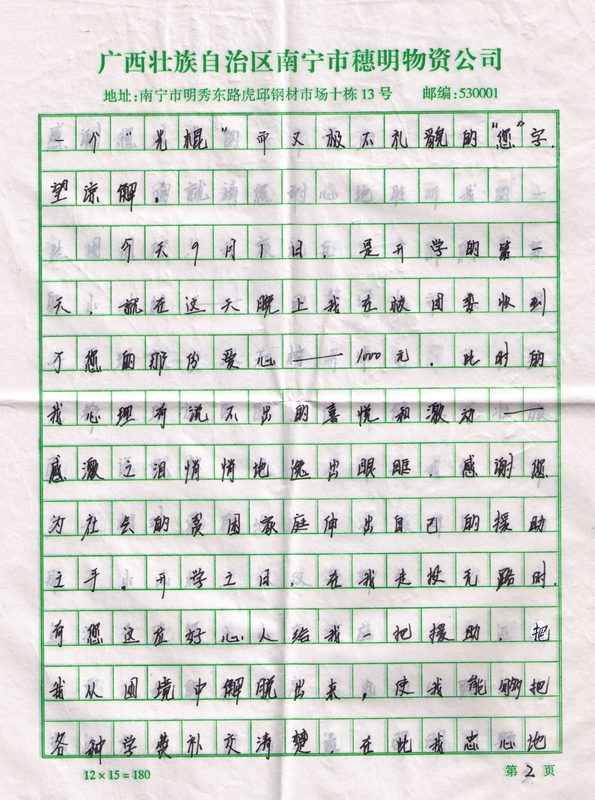 广西壮族自治区南宁市穗明物资公司
地址:南宁市明秀东路虎邱钢材市场十栋13号 邮编:530001
一个“光棍”而又极不礼貌的“您”字.
望谅解.
今天9月1日,是开学的第一
天.就在这天晚上我在校团委收到
了您的那份爱心——1000元.此时的
我心理有说不出的喜悦和激动——
感激之泪悄悄地逸出眼眶.感谢您
为社会的贫困家庭伸出自己的援助
之手.开学之日,在我走投无路时.
有您这位好心人给我一把援助,把
我从困境中解脱出来,使我能够把
各种学费补交清楚.在此我忠心地
12×15=180
第2页